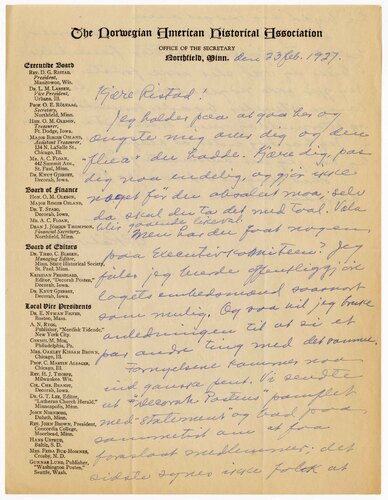 The Norwegian American Historical Association
OFFICE OF THE SECRETARY
Northfield, Minn. den 23 Feb. 1927.
Executive Board
REV. D. G. RISTAD,
President,
Manitowoc, Wis.
DR. L. M. LARSON,
Vice President,
Urbana, Ill.
PROF. O. E. RÖLVAAG,
Secretary,
Northfield, Minn.
HON. O. M. OLESON,
Treasurer,
Ft. Dodge, Iowa.
MAJOR BIRGER OSLAND,
Assistant Treasurer,
134 N. LaSalle St.
Chicago, Ill.
MR. A. C. FLOAN,
642 Summit Ave.,
St. Paul, Minn.
DR. KNUT GJERSET,
Decorah, Iowa.
Board of Finance
HON. O. M. OLESON,
MAJOR BIRGER OSLAND,
DR. T. STABO,
Decorah, Iowa.
MR. A. C. FLOAN,
DEAN J. JÖRGEN THOMPSON,
Financial Secretary,
Northfield, Minn.
Board of Editors
DR. THEO. C. BLEGEN,
Managing Editor,
Minn. State Historical Society
St. Paul, Minn.
KRISTIAN PRESTGARD,
Editor, "Decorah Posten",
Decorah, Iowa.
DR. KNUT GJERSET,
Decorah, Iowa.
Local Vice Presidents
DR. E. NYMAN FIGVED,
Boston, Mass.
A. N. RYGG,
Publisher, "Nordisk Tidende",
New York City.
CONSUL M. MOE,
Philadelphia, Pa.
MRS. OAKLEY KISSAM BROWN,
Chicago, Ill.
PROF. C. MARTIN ALSAGER,
Chicago, Ill.
REV. H. J. THORPE,
Milwaukee, Wis.
CHR. CHR. BRANDT,
Decorah, Iowa.
DR. G. T. LEE, Editor
"Lutheran Church Herald",
Minneapolis, Minn.
JOHN NORWOOD,
Duluth, Minn.
REV. JOHN BROWN, President
Concordia College,
Moorhead, Minn.
HANS USTRUD,
Baltic, S. D.
MRS. FRIDA BUE-HOMNES,
Crosby, N. D.
GUNNAR LUND, Publisher
"Washington Posten",
Seattle, Wash.
Kjære Ristad!
Jeg holder paa at gaa her og
ængste mig over dig og den
"flu'a" du hadde. Kjære dig, pas
dig noa endelig, og gjör ikke
noget for du absolut maa; selv
da skal du ta det med taal.
Men har du faat nogen
paa Executivkomiteen. Jeg
föler, og burde offentliggjöre
lagets embedsmænd saasnart
som mulig. Og saa vil jeg bruke
anledningen til at si et
par andre ting med det samme.
Fornyelsene kommer noa
ind ganske pent. Vi sendte
ut "Decorah Postens" pamflet
med "statement" og bad paa
samme tid om at faa
foreslaat medlemmer. det
sidste synes ikke folk at